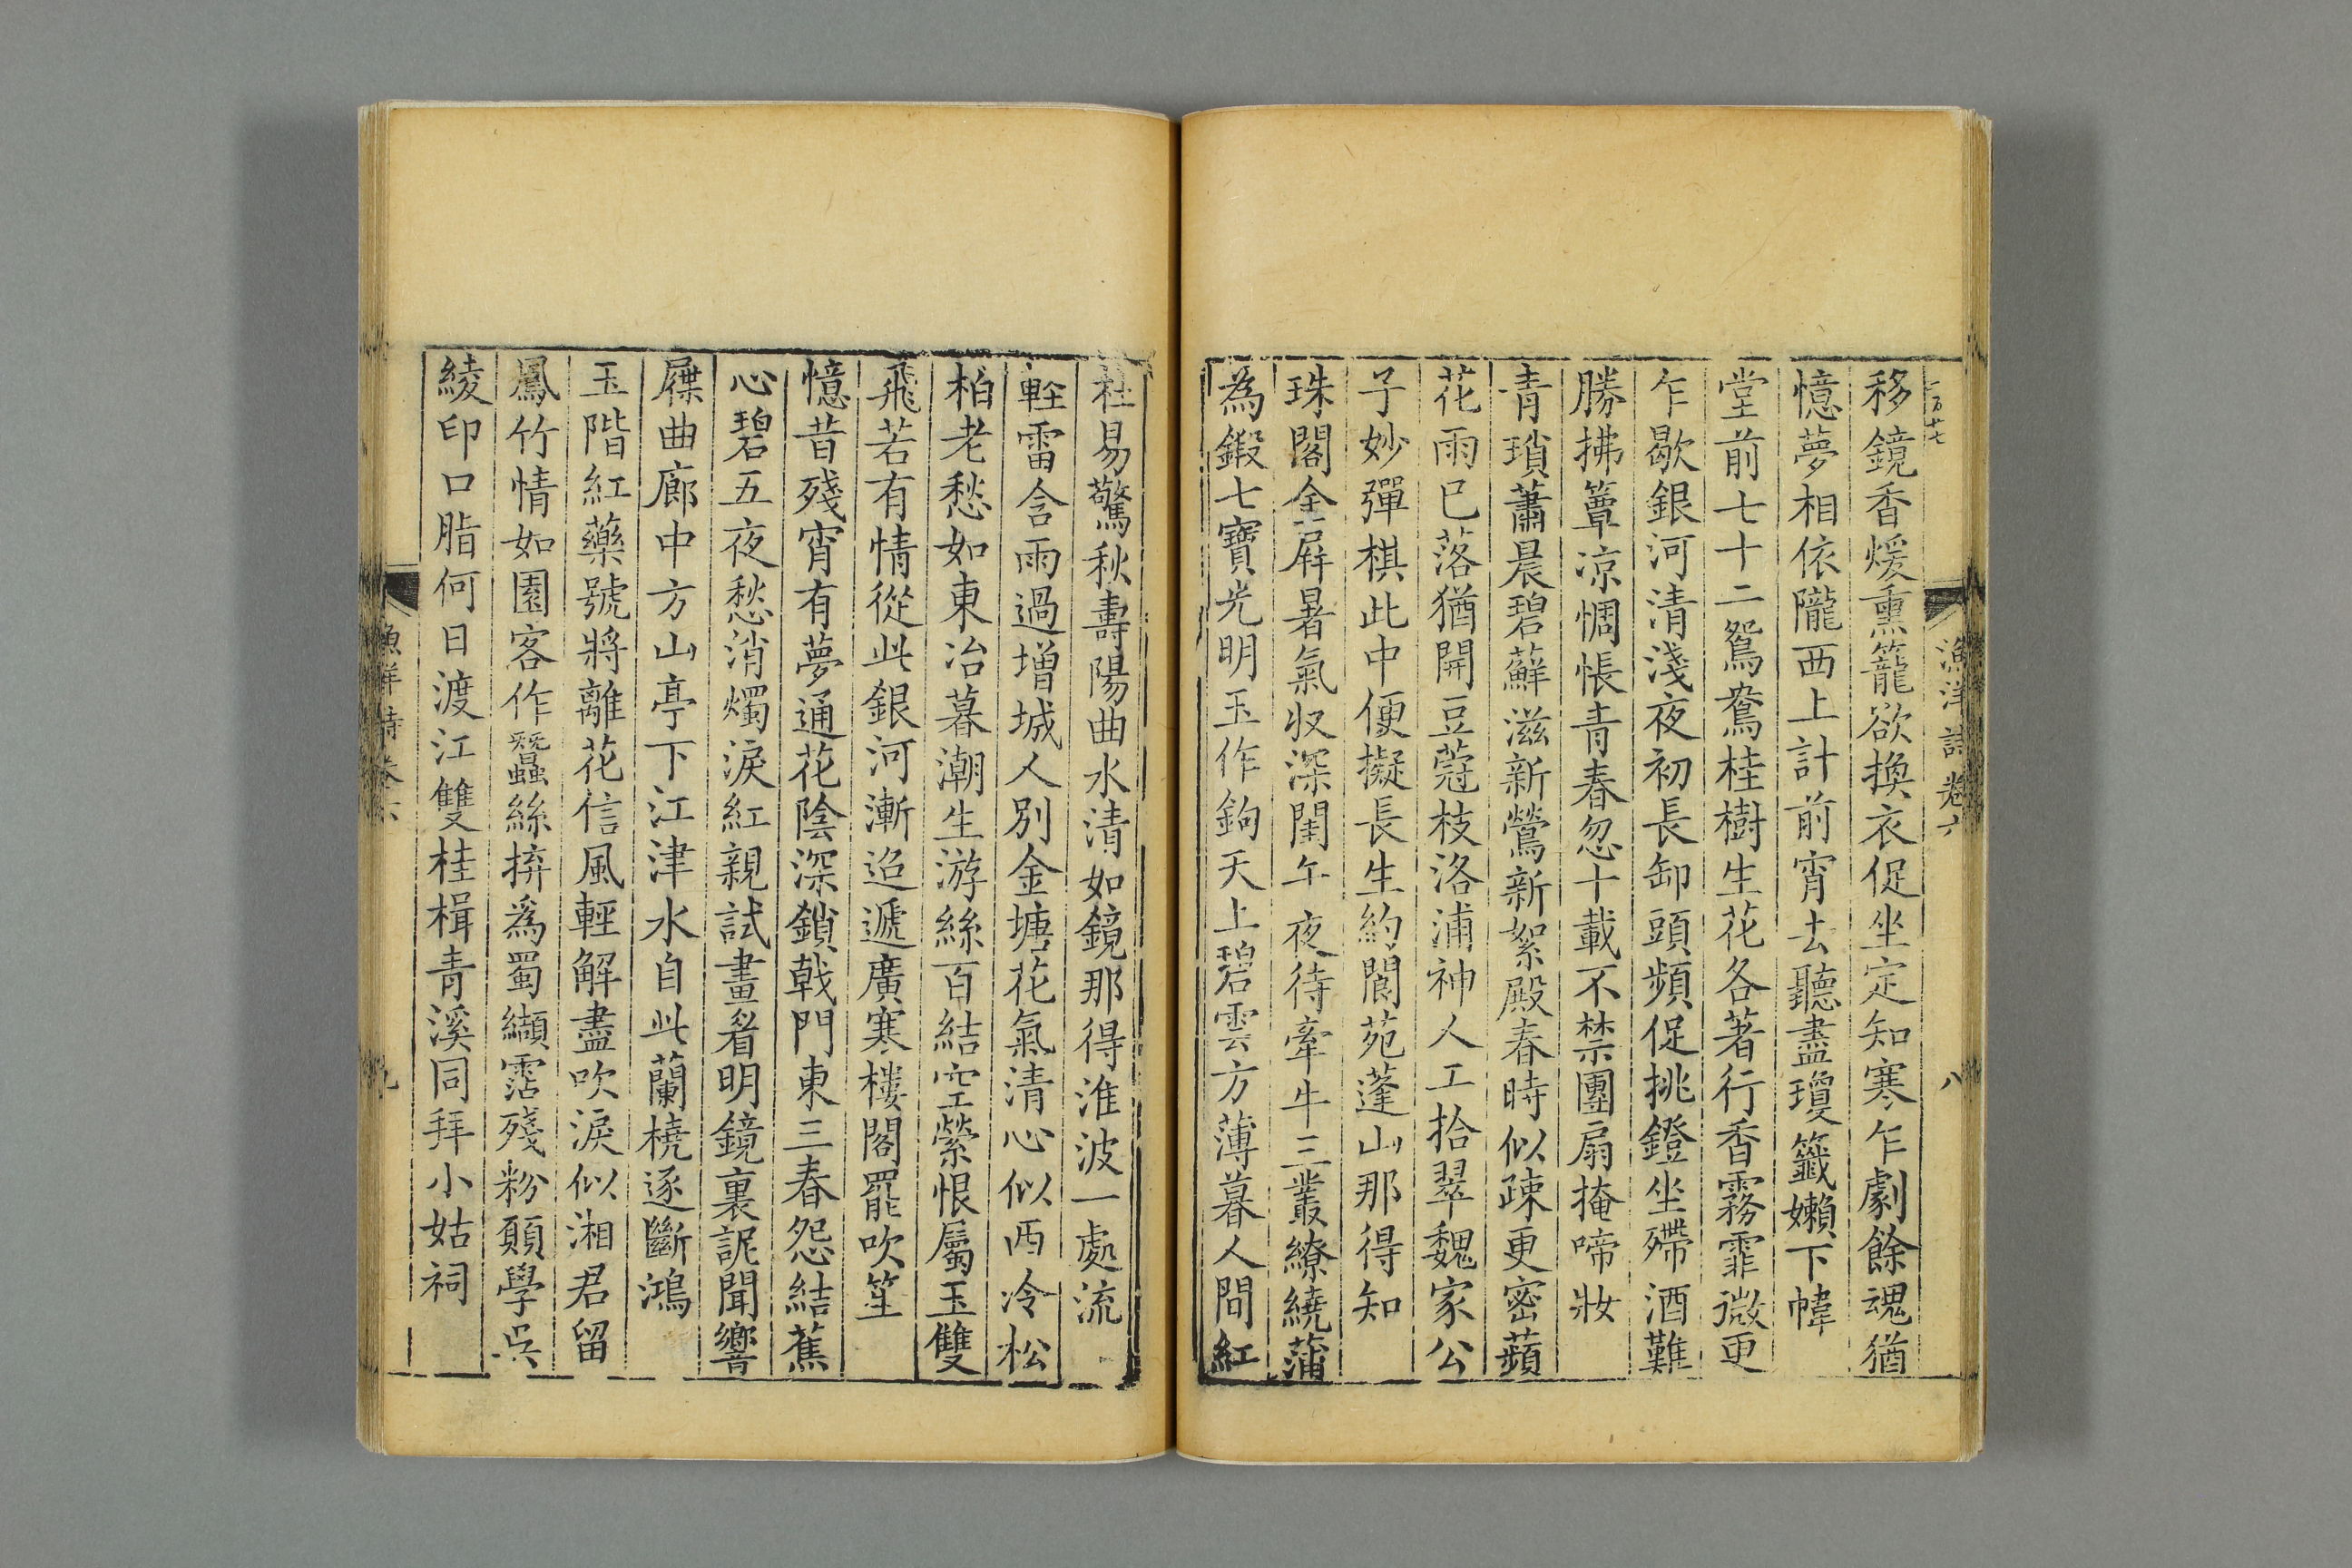 漁洋詩卷六 八
移鏡香煖熏籠欲換衣促坐定知寒乍劇餘魂猶
憶夢相依隴西上計前宵去聽盡瓊籤嬾下幃
堂前七十二鴛鴦桂樹生花各著行香霧霏微更
乍歇銀河清淺夜初長卸頭頻促挑鐙坐殢酒難
勝拂簟凉惆悵青春忽十載不禁團扇掩啼妝
青瑣蕭晨碧蘚滋新鶯新絮殿春時似疎更密蘋
花雨已落猶開豆蔻枝洛浦神人工拾翠魏家公
子妙彈棋此中便擬長生約閬苑蓬山那得知
珠閣金屏暑氣收深閨午夜待牽牛三叢繚繞蒲
為鍛七寶光明玉作鉤天上碧雲方薄暮人間紅
社易驚秋壽陽曲水清如鏡那得淮波一處流
輕雷含雨過增城人別金塘花氣清心似西泠松
柏老愁如東冶暮潮生游絲百結空縈恨屬玉雙
飛若有情從此銀河漸迢遞廣寒樓閣罷吹笙
憶昔殘宵有夢通花陰深鎖戟門東三春怨結蕉
心碧五夜愁消燭淚紅親試畫眉明鏡裏誢聞響
屧曲廊中方山亭下江津水自此蘭橈逐斷鴻
玉階紅藥號將離花信風輕解盡吹淚似湘君留
鳳竹情如園客作蠶絲拚為蜀纈霑殘粉願學吳
綾印口脂何日渡江雙桂楫青溪同拜小姑祠
漁洋詩卷六 九